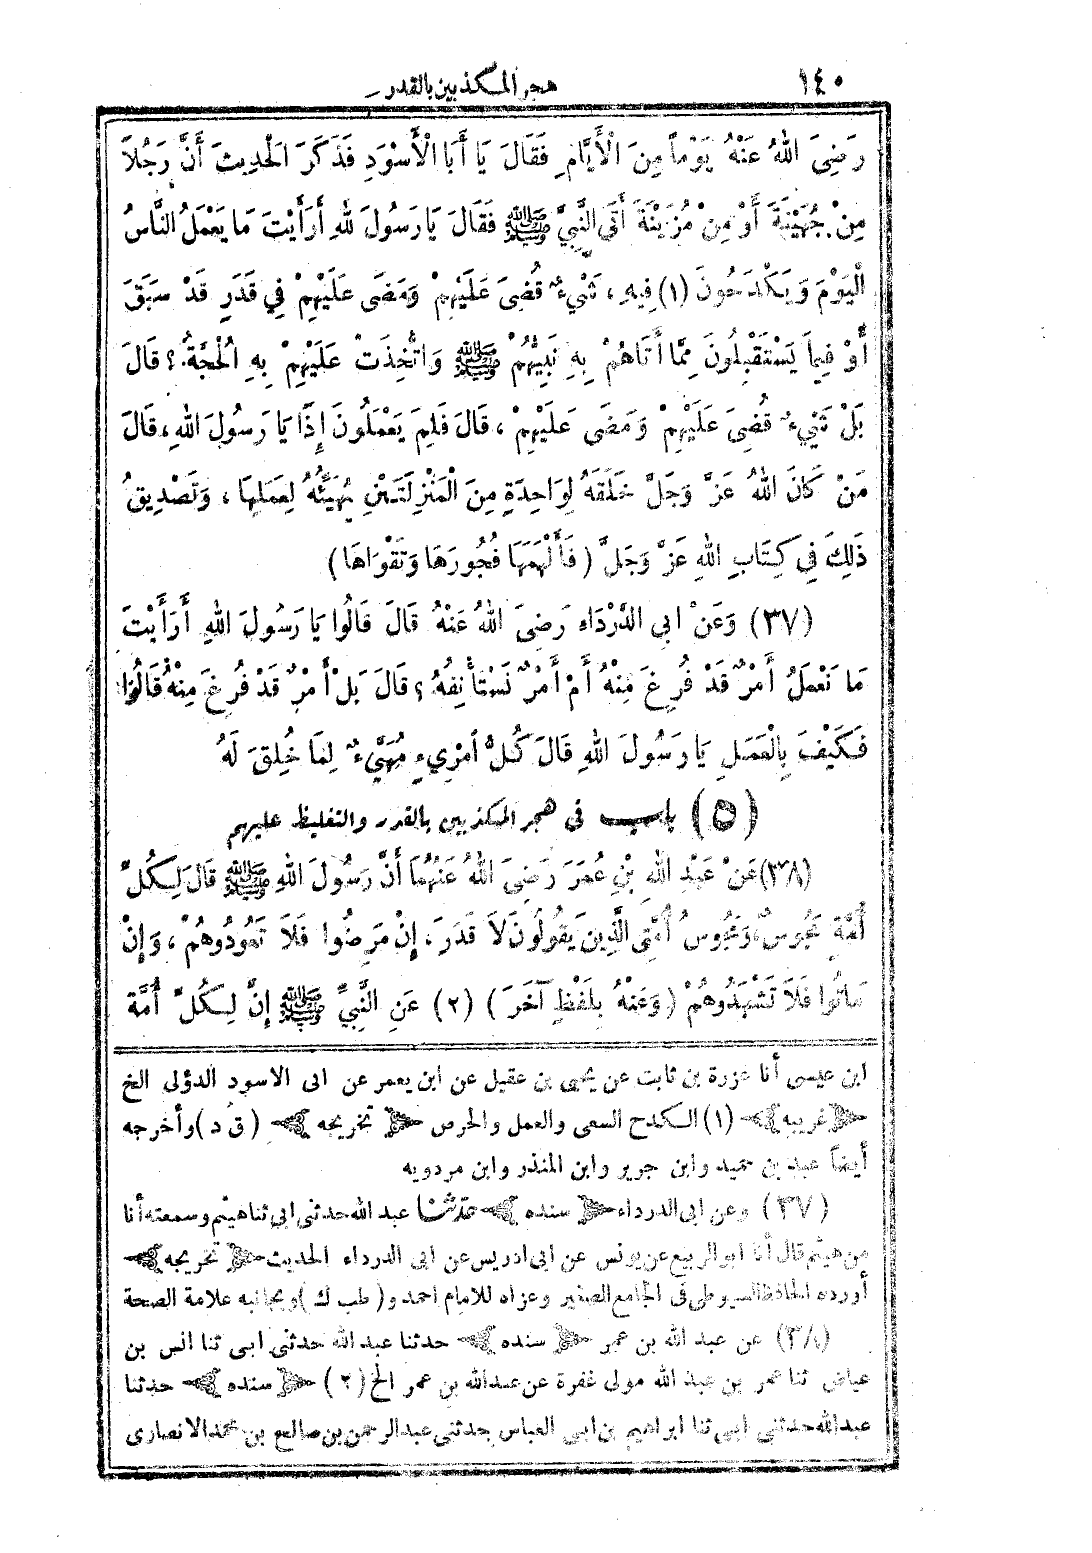 ١٤٠
هجر المكذبين بالقدر
رَضِيَ اللهُ عَنْهُ يَوْماً مِنَ الْأَيَّامِ فَقَالَ يَا أَبَا الْأَسْوَدِ فَذَكَرَ الْحَدِيثَ أَنَّ رَجُلاً
مِنْ جُهَيْنَةَ أَوْ مِنْ مُزَيْنَةَ أَتَى النَّبِيَّ ﷺ فَقَالَ يَا رَسُولَ للهِ أَرَأَيْتَ مَا يَعْمَلُ النَّاسُ
الْيَوْمَ وَيَكْدَحُونَ (١) فِيهِ ، شَيْءٌ قُضِيَ عَلَيْهِمْ وَمَضَى عَلَيْهِمْ فِي قَدَرٍ قَدْ سَبَقَ
أَوْ فِيمَا يَسْتَقْبِلُونَ مِمَّا أَتَاهُمْ بِهِ نَبِيُّهُمْ ﷺ وَاتُّخِذَتْ عَلَيْهِمْ بِهِ الْحُجَّةُ ؟ قَالَ
بَلْ شَيْءٌ قُضِيَ عَلَيْهِمْ وَمَضَى عَلَيْهِمْ ، قَالَ فَلِمَ يَعْمَلُونَ إِذًا يَا رَسُولَ اللهِ ، قَالَ
مَنْ كَانَ اللهُ عَزَّ وَجَلَّ خَلَقَهُ لِوَاحِدَةٍ مِنَ الْمَنْزِلَتَيْنِ يُهَيِّئُهُ لِعَمَلِهَا ، وَتَصْدِيقُ
ذَلِكَ فِي كِتَابِ اللهِ عَزَّ وَجَلَّ ( فَأَلْهَمَهَا فُجُورَهَا وَتَقْوَاهَا )
(٣٧) وَعَنْ ابي الدَّرْدَاءِ رَضِيَ اللهُ عَنْهُ قَالَ قَالُوا يَا رَسُولَ اللهِ أَرَأَيْتَ
مَا نَعْمَلُ أَمْرٌ قَدْ فُرِغَ مِنْهُ أَمْ أَمْرٌ نَسْتَأْنِفُهُ ؟ قَالَ بَلْ أَمْرٌ قَدْ فُرِغَ مِنْهُ قَالُوا
فَكَيْفَ بِالْعَمَلِ يَا رَسُولَ اللهِ قَالَ كُلُّ أمْرِيءٍ مُهَيَّءٌ لِمَا خُلِقَ لَهُ
(٥) باب في هجر المكذبين بالقدر والتغليظ عليهم
(٣٨) عَنْ عَبْدِ اللهِ بْنِ عُمَرَ رَضِيَ اللهُ عَنْهُمَا أَنَّ رَسُولَ اللهِ ﷺ قَالَ لِكُلِّ
أُمَّةٍ مَجُوسٌ ، وَمَجُوسُ أُمَّتِي الَّذِينَ يَقُولُونَ لَا قَدَرَ ، إِنْ مَرِضُوا فَلَا تَعُودُوهُمْ ، وَإِنْ
مَاتُوا فَلَا تَشْهَدُوهُمْ ( وَعَنْهُ بِلَفْظٍ آخَرَ ) (٢) عَنِ النَّبِيِّ ﷺ إِنَّ لِكُلِّ أُمَّة
ابن عيسى أنا عزرة بن ثابت عن يحيى بن عقيل عن ابن يعمر عن ابى الاسود الدؤلى الخ
﴿ غريبه ﴾ (١) الكدح السعى والعمل والحرص ﴿ تخريجه ﴾ ( ق د ) وأخرجه
أيضاً عبد بن حميد وابن جرير وابن المنذر وابن مردويه
(٣٧) وعن ابى الدرداء ﴿ سنده ﴾ حدثنا عبد الله حدثنى ابى ثنا هيثم وسمعته أنا
من هيثم قال أنا ابو الربيع عن يونس عن ابى ادريس عن ابى الدرداء الحديث ﴿ تخريجه ﴾
أورده الحافظ السيوطى فى الجامع الصغير وعزاه للامام احمد و ( طب ك ) وبجانبه علامة الصحة
(٣٨) عن عبد الله بن عمر ﴿ سنده ﴾ حدثنا عبد الله حدثنى ابى ثنا انس بن
عياض ثنا عمر بن عبد الله مولى غفرة عن عبد الله بن عمر الخ (٢) ﴿ سنده ﴾ حدثنا
عبد الله حدثنى ابى ثنا ابراهيم بن ابى العباس حدثنى عبد الرحمن بن صالح بن محمد الانصارى